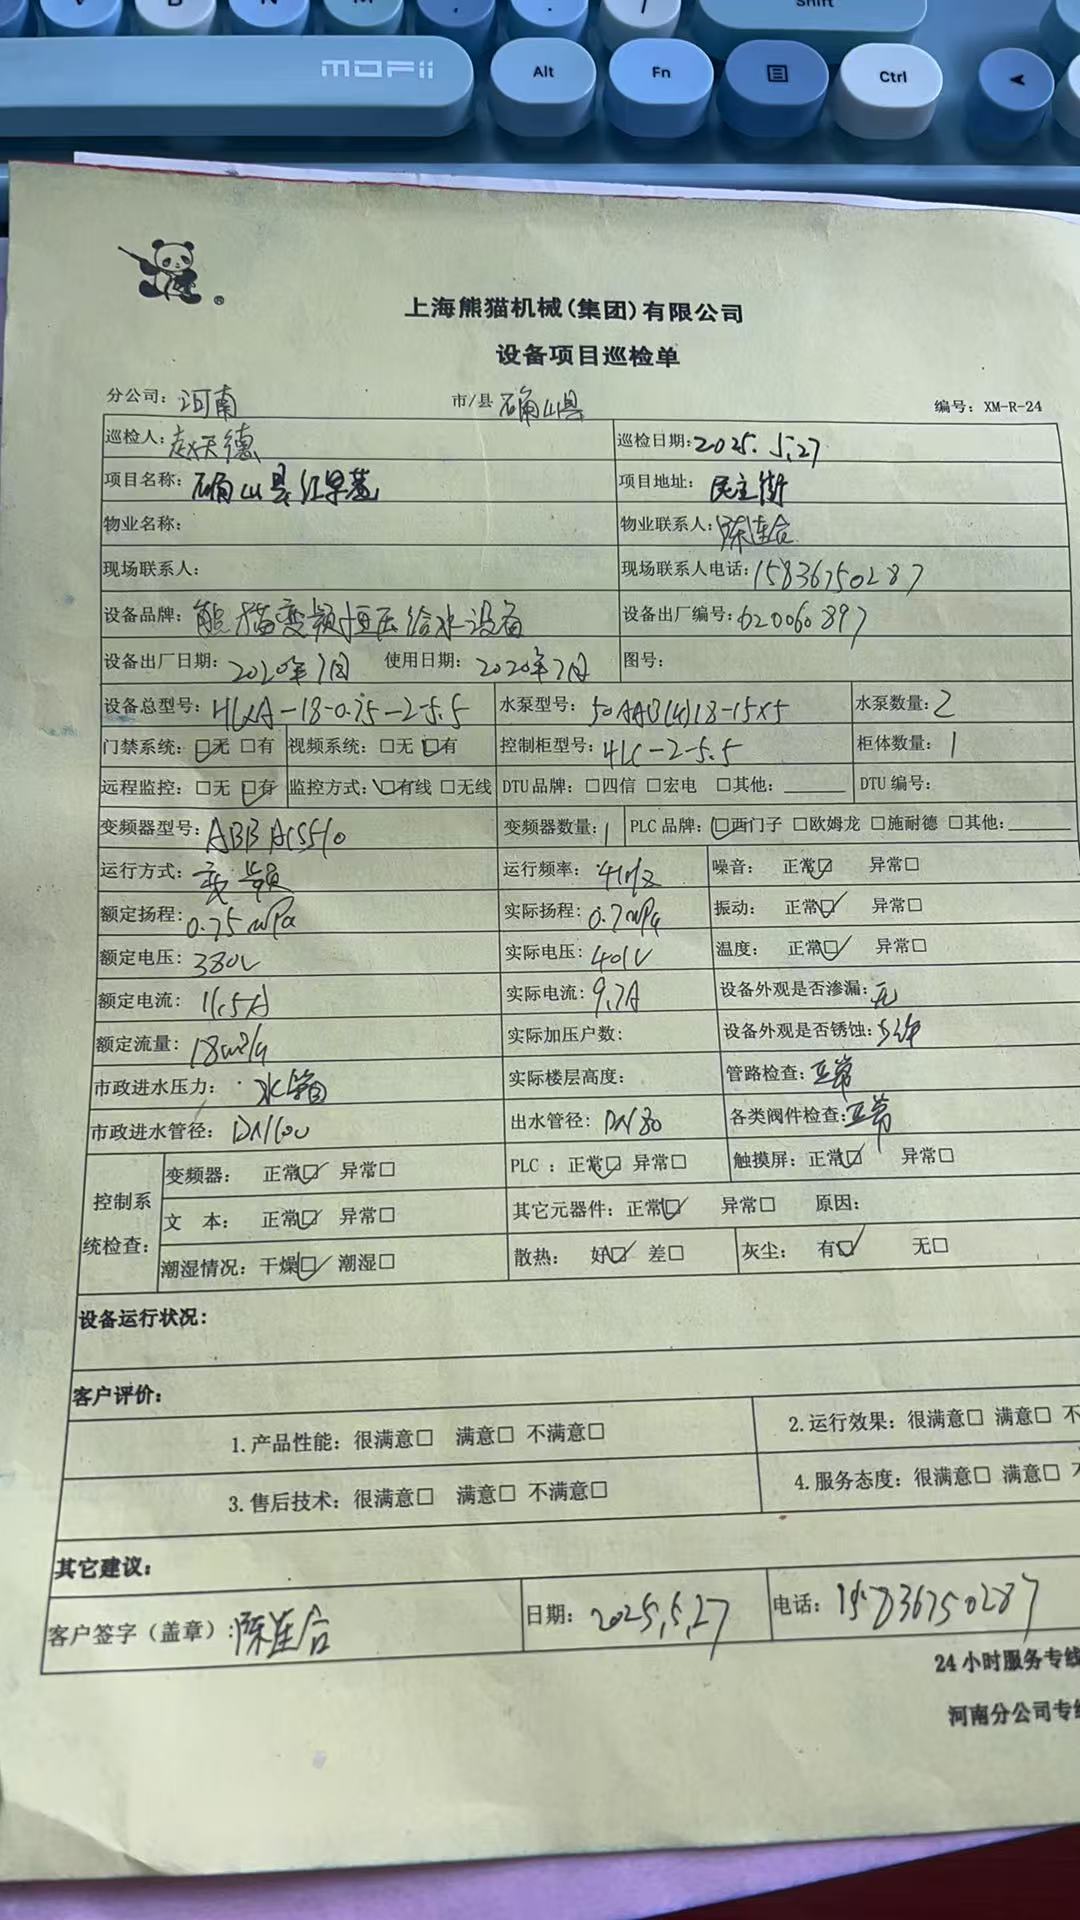 MOFii Alt Fn Ctrl
Shift
上海熊猫机械(集团)有限公司
设备项目巡检单
分公司: 河南 市/县 确山县 编号: XM-R-24
巡检人: 赵天德 巡检日期: 2025.5.27
项目名称: 确山县红早苑 项目地址: 民主街
物业名称: 物业联系人: 陈连合
现场联系人: 现场联系人电话: 15836750287
设备品牌: 熊猫变频恒压给水设备 设备出厂编号: 620060897
设备出厂日期: 2020年7月 使用日期: 2020年7月 图号:
设备总型号: HLXA-18-0.75-2-5.5 水泵型号: 50AAB(4)18-15X5 水泵数量: 2
门禁系统: □无 □有 视频系统: □无 □有 控制柜型号: HLC-2-5.5 柜体数量: 1
远程监控: □无 □有 监控方式: □有线 □无线 DTU品牌: □四信 □宏电 □其他: DTU编号:
变频器型号: ABB ACS510 变频器数量: 1 PLC品牌: □西门子 □欧姆龙 □施耐德 □其他:
运行方式: 变频 运行频率: 41Hz 噪音: 正常☑ 异常□
额定扬程: 0.75mPa 实际扬程: 0.7mPa 振动: 正常☑ 异常□
额定电压: 380V 实际电压: 401V 温度: 正常☑ 异常□
额定电流: 11.5A 实际电流: 9.7A 设备外观是否渗漏: 无
额定流量: 18m³/h 实际加压户数: 设备外观是否锈蚀:
市政进水压力: 水箱 实际楼层高度: 管路检查: 正常
市政进水管径: DN100 出水管径: DN80 各类阀件检查: 正常
控制系统检查: 变频器: 正常☑ 异常□ PLC: 正常☑ 异常□ 触摸屏: 正常☑ 异常□
文 本: 正常☑ 异常□ 其它元器件: 正常☑ 异常□ 原因:
潮湿情况: 干燥☑ 潮湿□ 散热: 好☑ 差□ 灰尘: 有☑ 无□
设备运行状况:
客户评价:
1.产品性能: 很满意□ 满意□ 不满意□ 2.运行效果: 很满意□ 满意□ 不
3.售后技术: 很满意□ 满意□ 不满意□ 4.服务态度: 很满意□ 满意□
其它建议:
客户签字(盖章): 陈连合 日期: 2025.5.27 电话: 15836750287
24小时服务专线
河南分公司专线